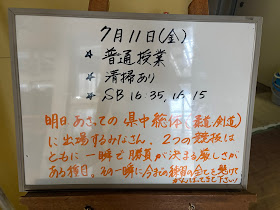 7月11日(金)
* 普通授業
* 清掃あり
* SB 16:35, 16:15
明日、あさっての 県中総体(柔道、剣道)
に出場するみなさん。2つの競技は
ともに一瞬で勝負が決まる厳しさが
ある種目。その一瞬に今までの練習の全てを懸けて
がんばってきて下さい!